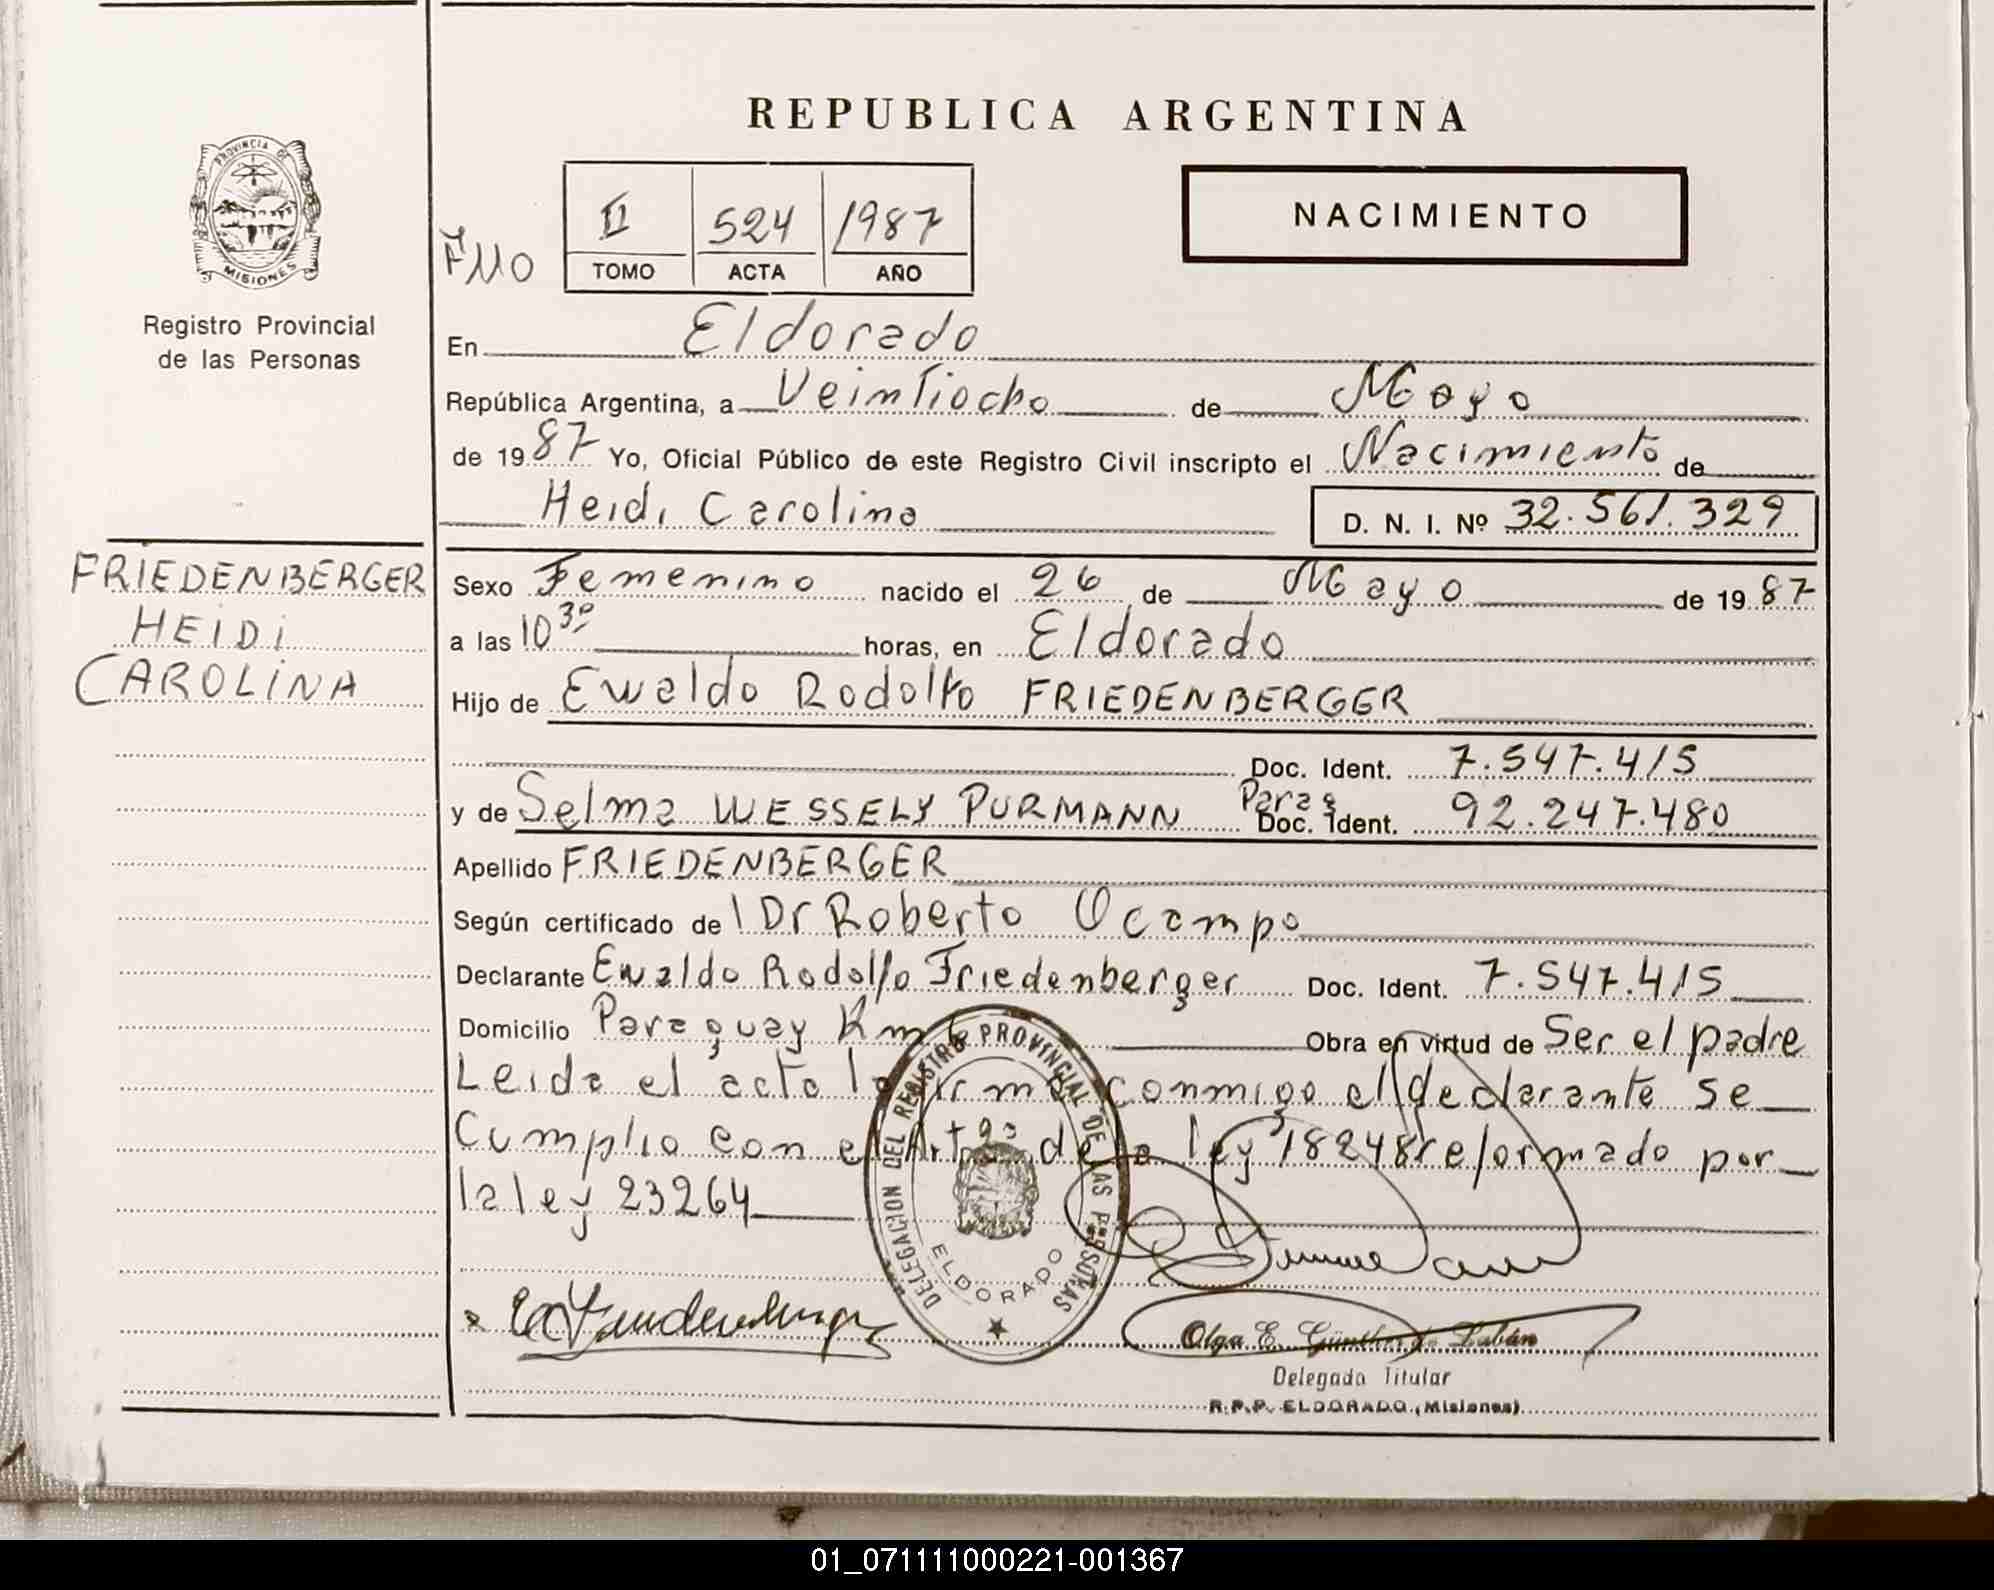 REPUBLICA ARGENTINA
PROVINCIA DE
MISIONES
Registro Provincial
de las Personas
II 524 1987
TOMO ACTA AÑO
NACIMIENTO
En Eldorado
República Argentina, a Veintiocho de Mayo
de 1987 Yo, Oficial Público de este Registro Civil inscripto el Nacimiento de
Heidi Carolina D. N. I. Nº 32.561.329
FRIEDENBERGER
HEIDI
CAROLINA
Sexo Femenino nacido el 26 de Mayo de 1987
a las 10 30 horas, en Eldorado
Hijo de Ewaldo Rodolfo FRIEDENBERGER
Doc. Ident. 7.547.415
y de Selma WESSELY PURMANN Parag Doc. Ident. 92.247.480
Apellido FRIEDENBERGER
Según certificado de l Dr Roberto Ocampo
Declarante Ewaldo Rodolfo Friedenberger Doc. Ident. 7.547.415
Domicilio Paraguay Km Obra en virtud de Ser el padre
Leida el acta la firma conmigo el declarante se
Cumplio con el Art 2º de la ley 18248 reformado por
la ley 23264
DELEGACION DEL REGISTRO PROVINCIAL DE LAS PERSONAS
ELDORADO
Olga E. Günther de Labán
Delegada Titular
R.P.P. ELDORADO (Misiones)
01_071111000221-001367